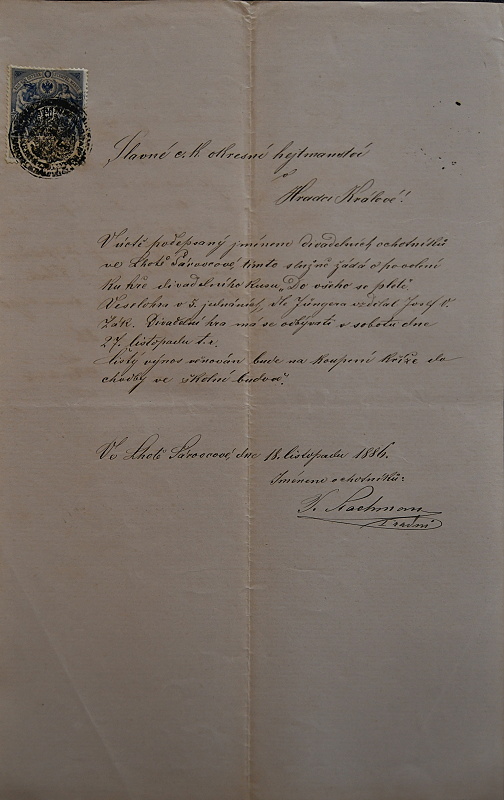 Slavné c. k. okresné hejtmanství
v
Hradci Králové!
V úctě podepsaný jménem divadelních ochotníků
ve Lhotě Šárovcově, tímto slušně žádá o povolení
ku hře divadelního kusu „Do všeho se plete"
Veselohra v 5 jednáních, dle Jüngera vzdělal Josef V.
Žák. Divadelní hra má se odbývati v sobotu dne
27. listopadu t. r.
Čistý výnos věnován bude na koupení kříže do
chodby ve školní budově.
Ve Lhotě Šárovcově, dne 18. listopadu 1886.
Jménem ochotníků:
radní